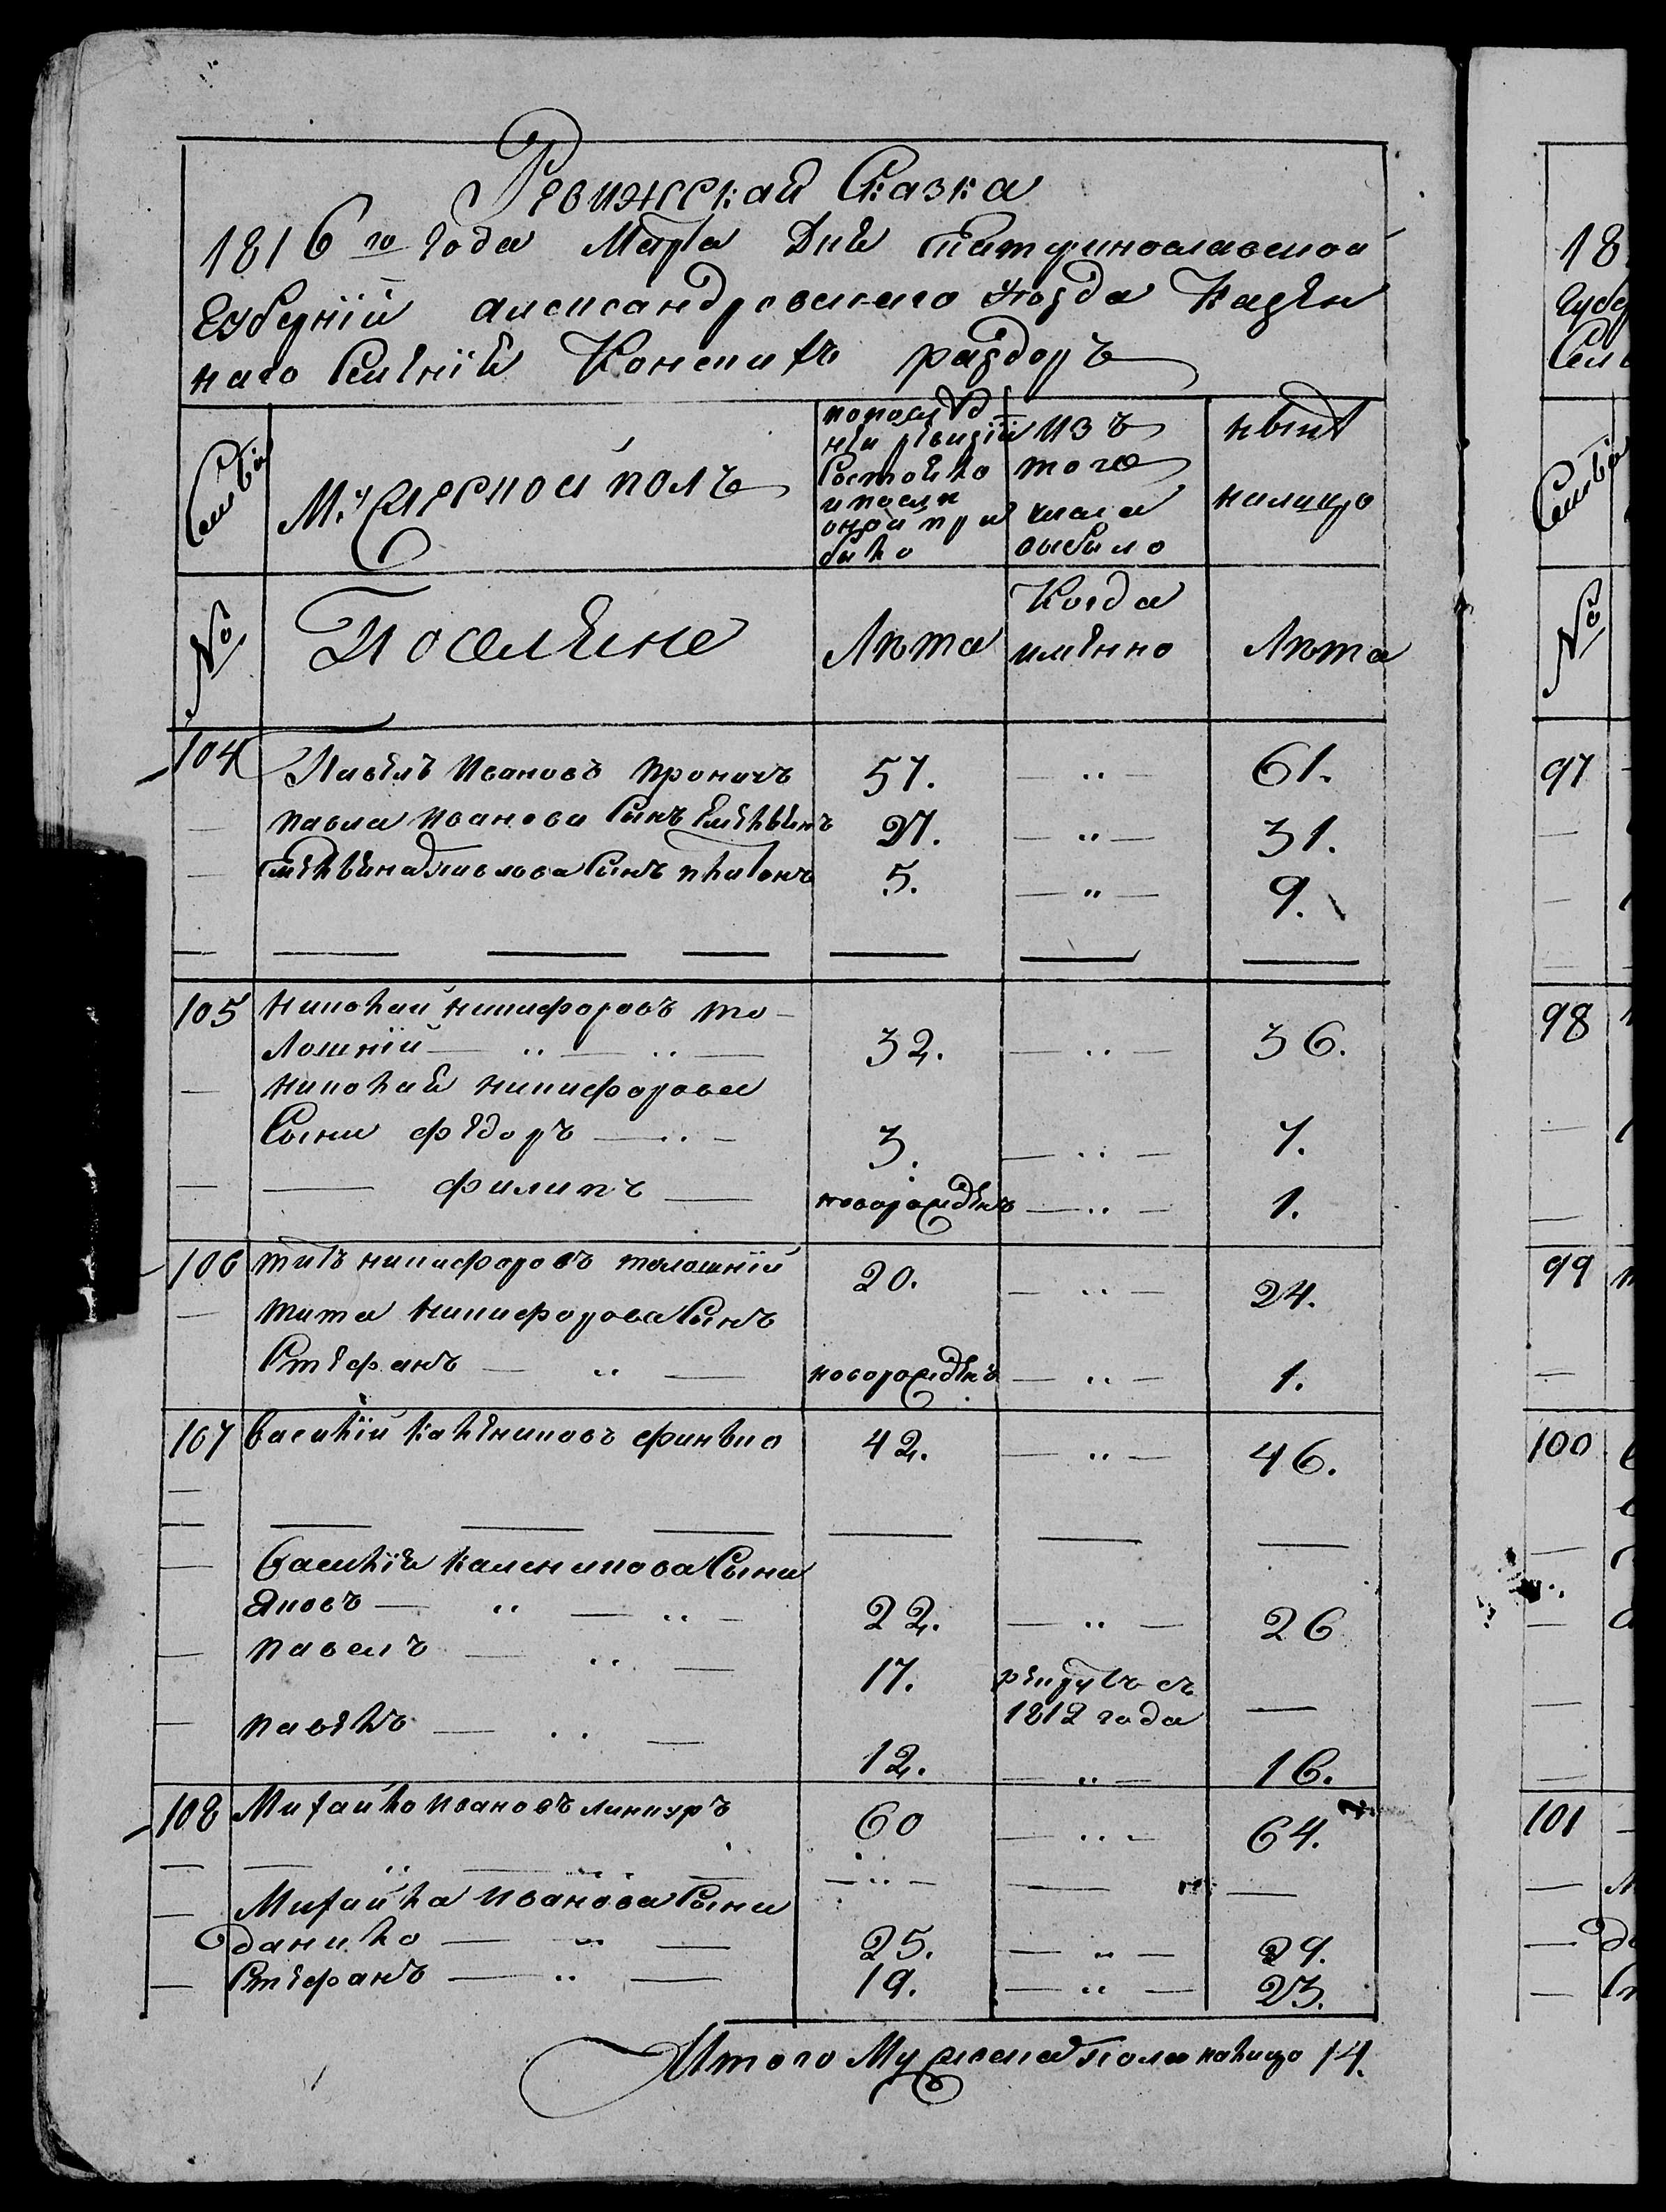 Ревижская Сказка
1816 го Года Марта Дня Екатеринославской
Губернии Александровского уезда Казен
наго Селения Конских раздор
Семьи
Мужеской полъ
по последней ревизии состояло и после оной прибыло
изъ того числа выбыло
ныне налицо
№
Поселяне
Лета
Когда именно
Лета
104 Павелъ Ивановъ Проничъ 57. — „ — 61.
— Павла Иванова Сынъ Емельянъ 27. — „ — 31.
— Емельяна Павлова Сынъ Платонъ 5. — „ — 9.
105 Николай Никифоровъ То-
лошнiй — „ — „ — 32. — „ — 36.
— Николая Никифорова
Сыни Федоръ — „ — 3. — „ — 7.
— — Филипъ — новорожденъ — „ — 1.
106 Титъ Никифоровъ Толошнiй 20. — „ — 24.
— Тита Никифорова Сынъ
Стефанъ — „ — новорожденъ — „ — 1.
107 Василiй Калениковъ 42. — „ — 46.
— Василiя Каленикова Сыни
Яковъ — „ — „ — 22. — „ — 26
— Павелъ — „ — 17. рекрутъ съ 1812 года —
— Павелъ — „ — 12. — „ — 16.
108 Михайло Ивановъ 60 — „ — 64.
— Михайла Иванова Сыни
Данило — „ — 25. — „ — 29.
— Стефанъ — „ — 19. — „ — 23.
Итого Мужеска Пола налицо 14.
18
97
98
99
100
101
Семьи
№